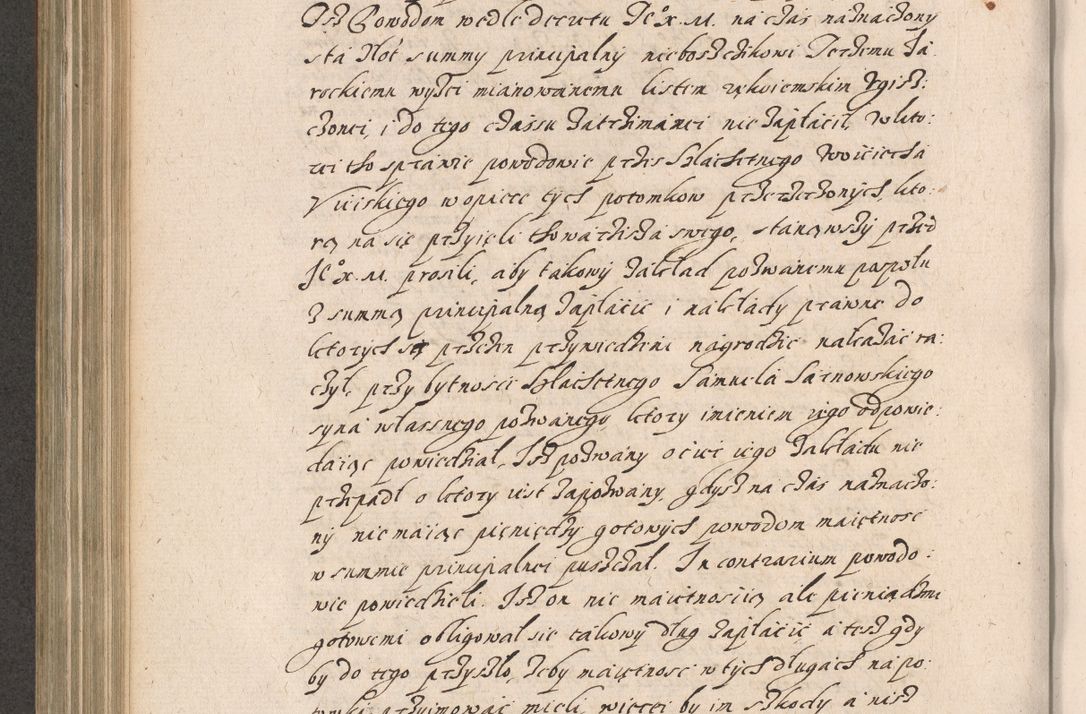 Isz Powodom wedle decretu Je° x. M. na czas naznaczony
sta złot summy principalny nieboszczikowi Jerzemu Ja:
rockiemu wyszei mianowanemu listem rękoiemskim
czonei, i do tego czassu zatrzimanei nie zapłacił, w kto:
rei tho sprawie powodowie przes Szlachetnego Woiciecha
Vieiskiego w opiece tych potomkow przerzeczonych, kto:
rą na się przyięli thowarzisza swego, stanąwszy przed
Je° x. M. prosili, aby takowy zakład pozwanemu pospołu
z summą principalną zapłacic i nakłady prawne do
ktorych są przezen przywiedzeni nagrodzic nakazac ra:
czył, przy bytnosci Szlachetnego Samuela Sarnowskiego
syna własnego pozwanego, ktory imieniem iego odpowie:
daiąc powiedział, Isz pozwany ociec iego zakładu nie
przepadł o ktory iest zapozwany, gdysz na czas naznaczo:
ny nie maiąc pieniędzy gotowych powodom maiętnosc
w summie principalnei puszczał. In contrarium powodo:
wie powiedzieli. Isz on nie maiętnoscią ale pieniądzmi
gotowemi obligował sie takowy dług zapłacic a tesz gdy
by do tego przyszło, zeby maiętnosc w tych długach napo:
tymki przyimowac mieli, więcei by im szkody a nisz